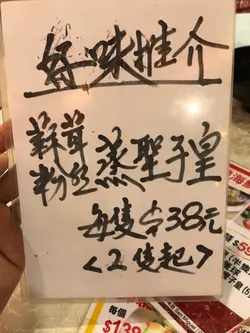 好味推介
蒜茸
粉丝蒸聖子皇
每隻$38元
<2隻起>
每個
$138